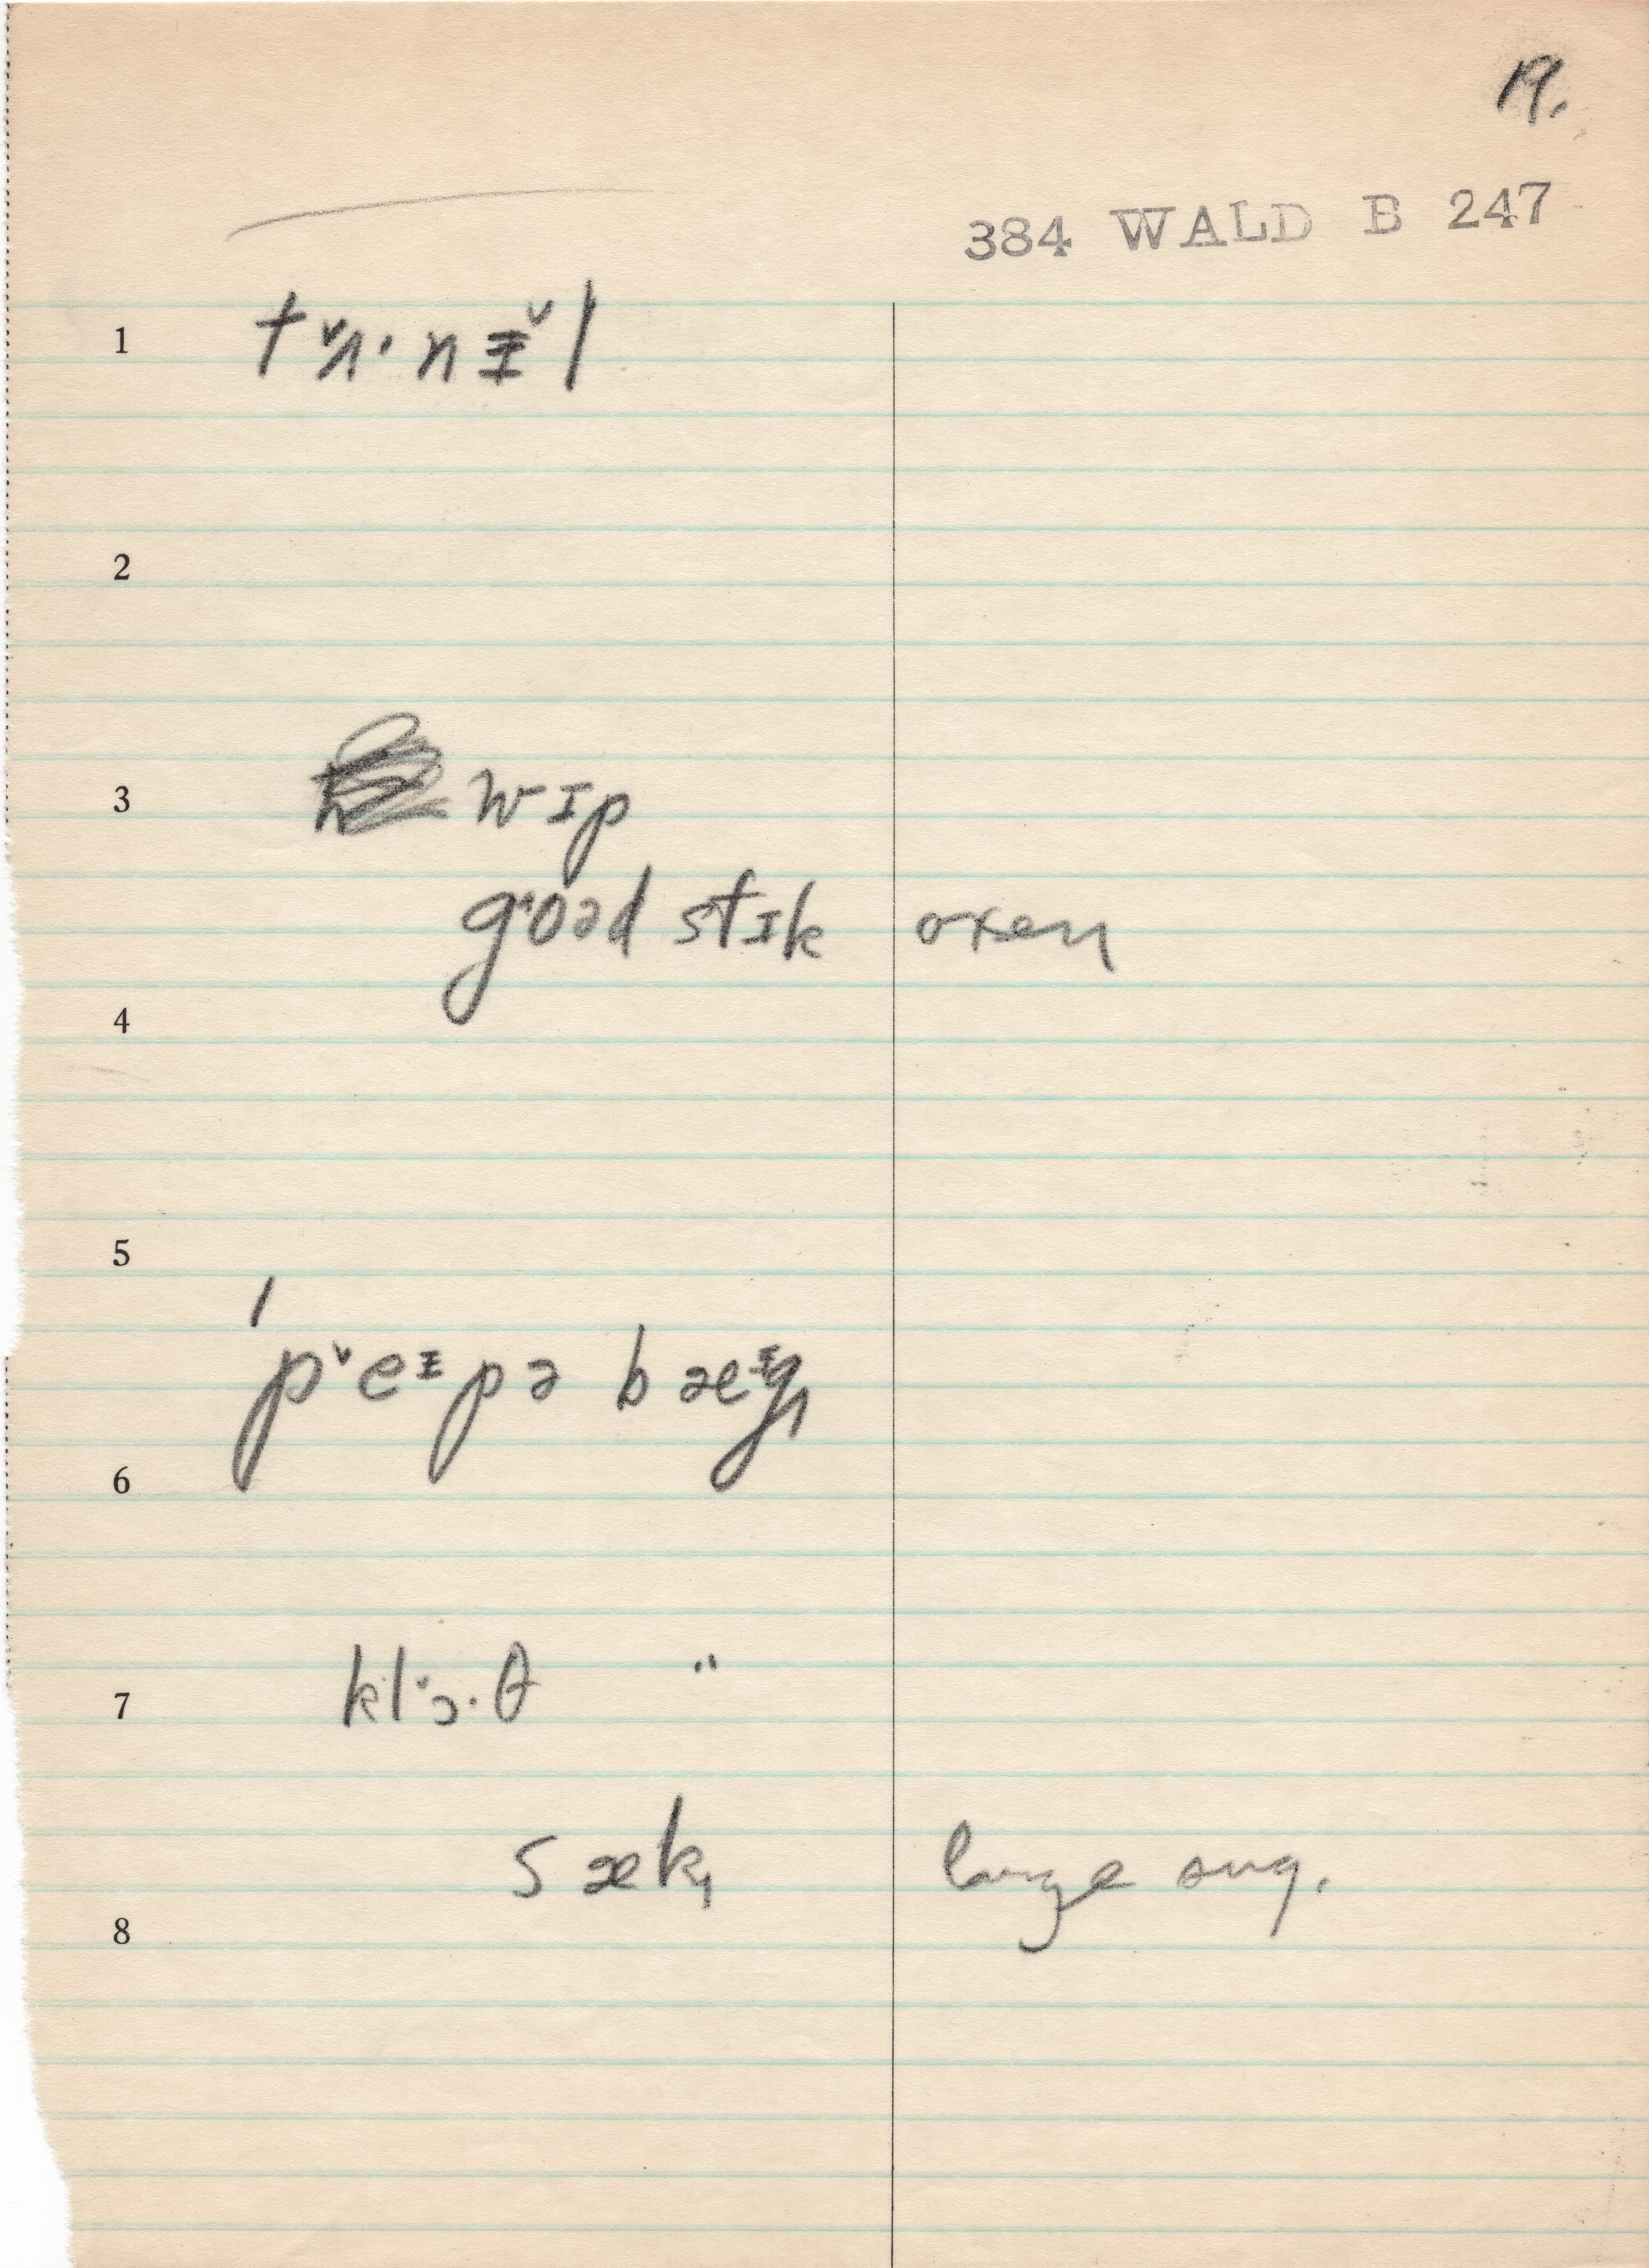 19.
384 WALD B 247
1 tᵛʌ·nɪ̵ᵛl
2
3 wɪp
goəd stɪk oxen
4
5
pᵛeᶤpə bæᶤg
6
klᵛɔ·θ "
7
sæk large sug.
8